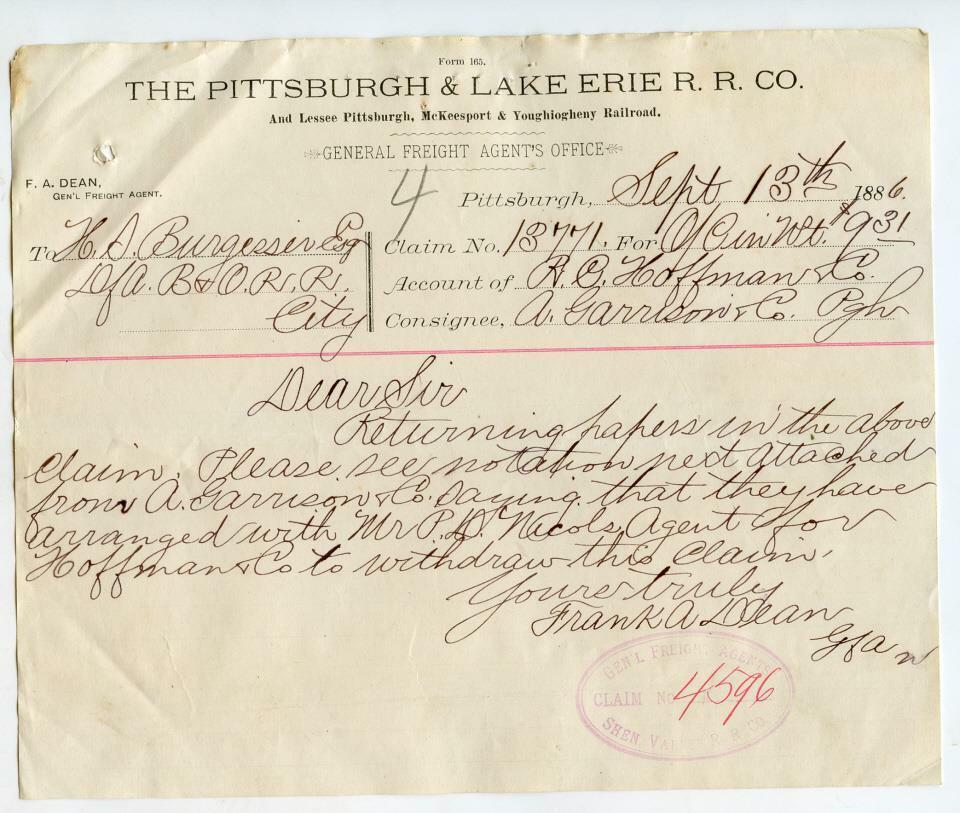 Form 165.
THE PITTSBURGH & LAKE ERIE R. R. CO.
And Lessee Pittsburgh, McKeesport & Youghiogheny Railroad.
GENERAL FREIGHT AGENT'S OFFICE
4
F. A. DEAN,
GEN'L FREIGHT AGENT.
Pittsburgh, Sept 13th 1886.
To H. S. Burgesser Esq
D.f.A. B & O. R. R.
City
Claim No. 13771, For O/C in Wt. $9 31
Account of R. C. Hoffman & Co.
Consignee, A. Garrison & Co. Pgh
Dear Sir
Returning papers in the above
claim. Please see notation next attached
from A. Garrison & Co. saying that they have
arranged with Mr P. D. Nicols, Agent for
Hoffman & Co to withdraw this claim.
Yours truly
Frank A Dean
GfA
GEN'L FREIGHT AGENTS
CLAIM No 4596
SHEN. VALLEY R. R. Co.